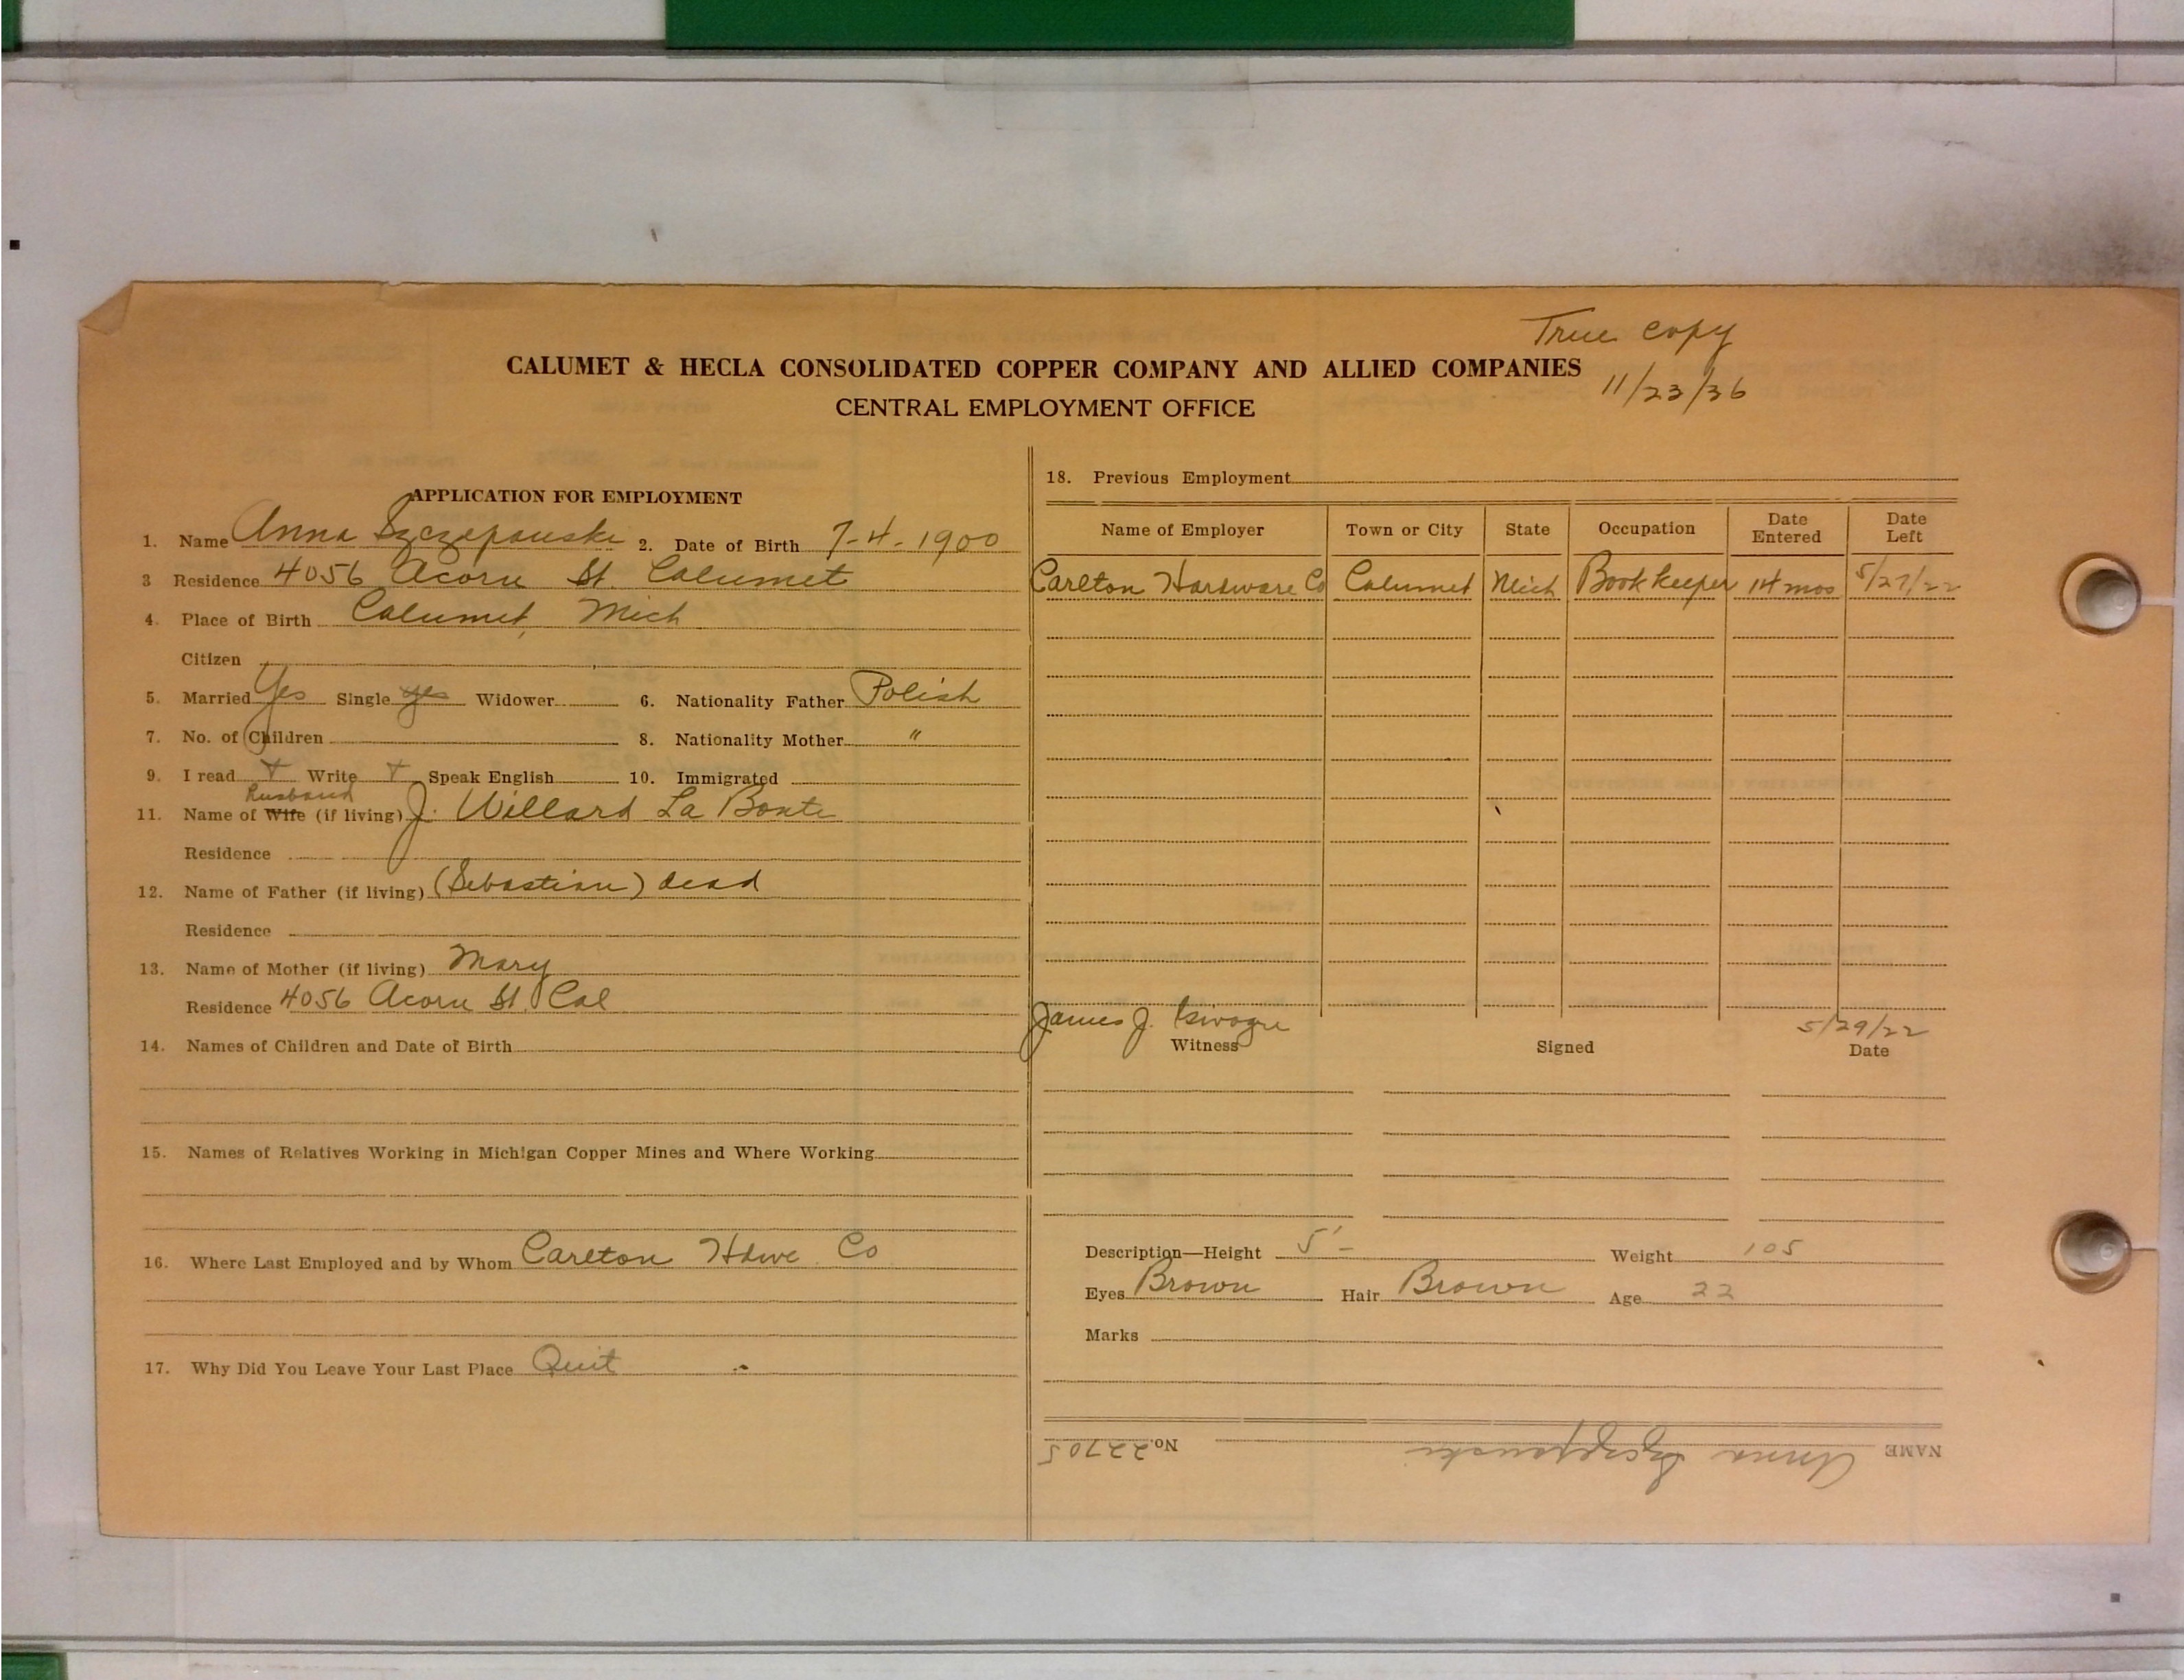 True copy
CALUMET & HECLA CONSOLIDATED COPPER COMPANY AND ALLIED COMPANIES
11/23/36
CENTRAL EMPLOYMENT OFFICE
APPLICATION FOR EMPLOYMENT
1. Name Anna Szczepanski 2. Date of Birth 7-4-1900
3 Residence 4056 Acorn St. Calumet
4. Place of Birth Calumet, Mich
Citizen
5. Married Yes Single yes Widower 6. Nationality Father Polish
7. No. of Children 8. Nationality Mother "
9. I read + Write + Speak English 10. Immigrated
husband
11. Name of Wife (if living) J. Willard La Bonte
Residence
12. Name of Father (if living) (Sebastian) dead
Residence
13. Name of Mother (if living) Mary
Residence 4056 Acorn St. Cal
14. Names of Children and Date of Birth
15. Names of Relatives Working in Michigan Copper Mines and Where Working
16. Where Last Employed and by Whom Carlton Hdwe Co
17. Why Did You Leave Your Last Place Quit
18. Previous Employment
Name of Employer Town or City State Occupation Date Entered Date Left
Carlton Hardware Co Calumet Mich Bookkeeper 14 mos 5/27/22
James J. 5/29/22
Witness Signed Date
Description—Height 5'- Weight 105
Eyes Brown Hair Brown Age 22
Marks
NAME Anna Szczepanski No. 22705